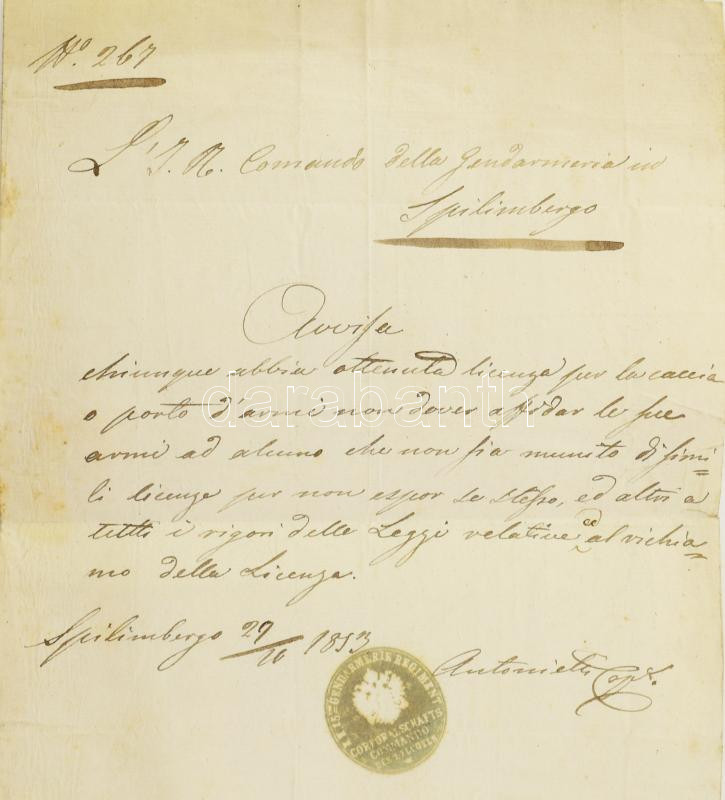 No. 267
L'I. R. Comando della Gendarmeria in
Spilimbergo
Avvisa
chiunque abbia ottenuta licenza per la caccia
o porto d'armi non dover affidar le sue
armi ad alcuno che non sia munito di simi=
li licenze per non espor se stesso, ed altri a
tutti i rigori delle Leggi relative ed al richia=
mo della Licenza.
Spilimbergo 29/10 1853
Antonietti Capl.
K.K. 15tes GENDARMERIE REGIMENT
CORPORALSCHAFTS
COMMANDO
darabanth